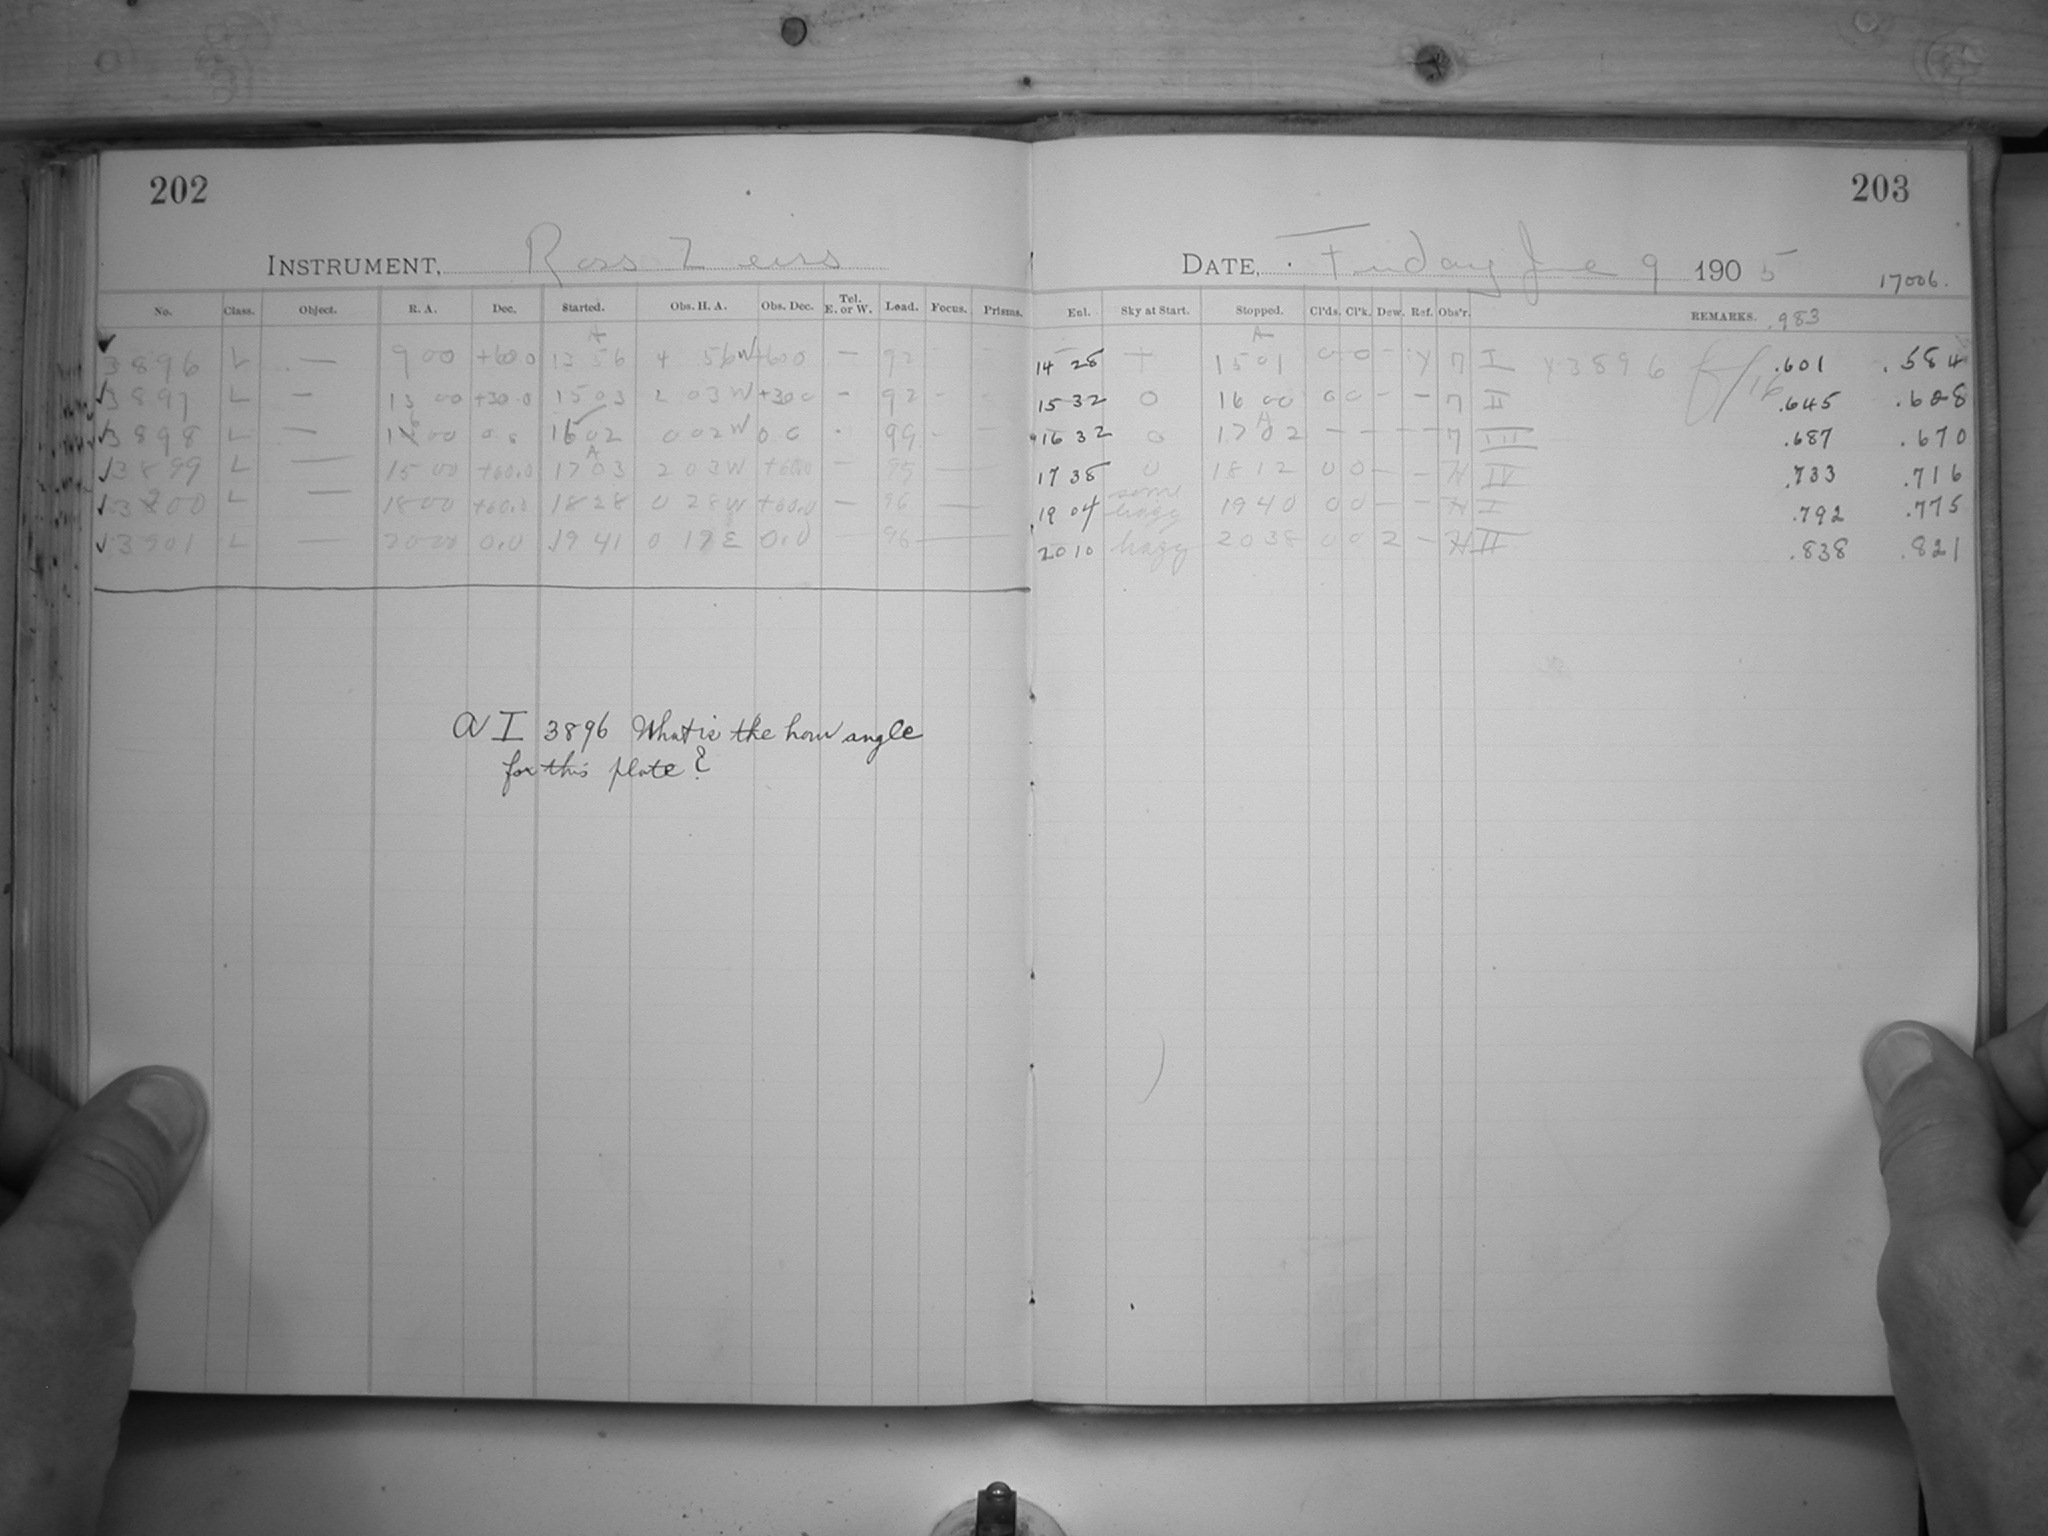 202
203
INSTRUMENT, Ross Zeiss
DATE, Friday June 9 1905
17006.
No. Class. Object. R. A. Dec. Started. Obs. H. A. Obs. Dec. Tel. E. or W. Lead. Focus. Prisms.
Enl. Sky at Start. Stopped. Cl'ds. Cl'k. Dew. Ref. Obs'r. REMARKS. .983
3896 L — 9 00 +60.0 13 56 4 56W +60.0 — 92
14 28 + 1501 0 0 - 7 I 3896 f/16 .601 .584
3897 L — 13 00 +30.0 1503 2 03W +30.0 — 92
15 32 0 16 00 0 0 - - 7 II .645 .628
3898 L — 00 0.0 1602 0 02W 0.0 99
16 32 0 1702 - - - - 7 III .687 .670
3899 L — 15 00 +60.0 1703 2 03W +60.0 — 95
17 38 0 1812 0 0 — - H IV .733 .716
3900 L — 18 00 +60.0 1828 0 28W +60.0 — 96 —
19 04 some hazy 1940 0 0 — - H I .792 .775
3901 L — 2000 0.0 1941 0 19E 0.0 — 96 —
20 10 hazy 2038 0 0 2 - H II .838 .821
A I 3896 What is the hour angle
for this plate?